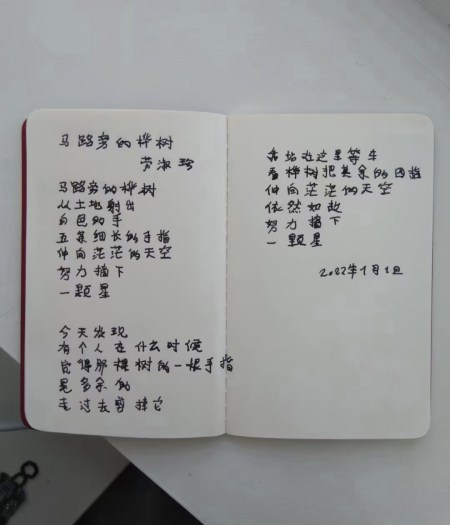 马路旁的桦树
劳淑珍
马路旁的桦树
从土地射出
白色的手
五条细长的手指
伸向茫茫的天空
努力摘下
一颗星
今天发现
有个人在什么时候
觉得那棵树的一根手指
是多余的
走过去剪掉它
我站在这里等车
看桦树把其余的四指
伸向茫茫的天空
依然如故
努力摘下
一颗星
2022年1月1日